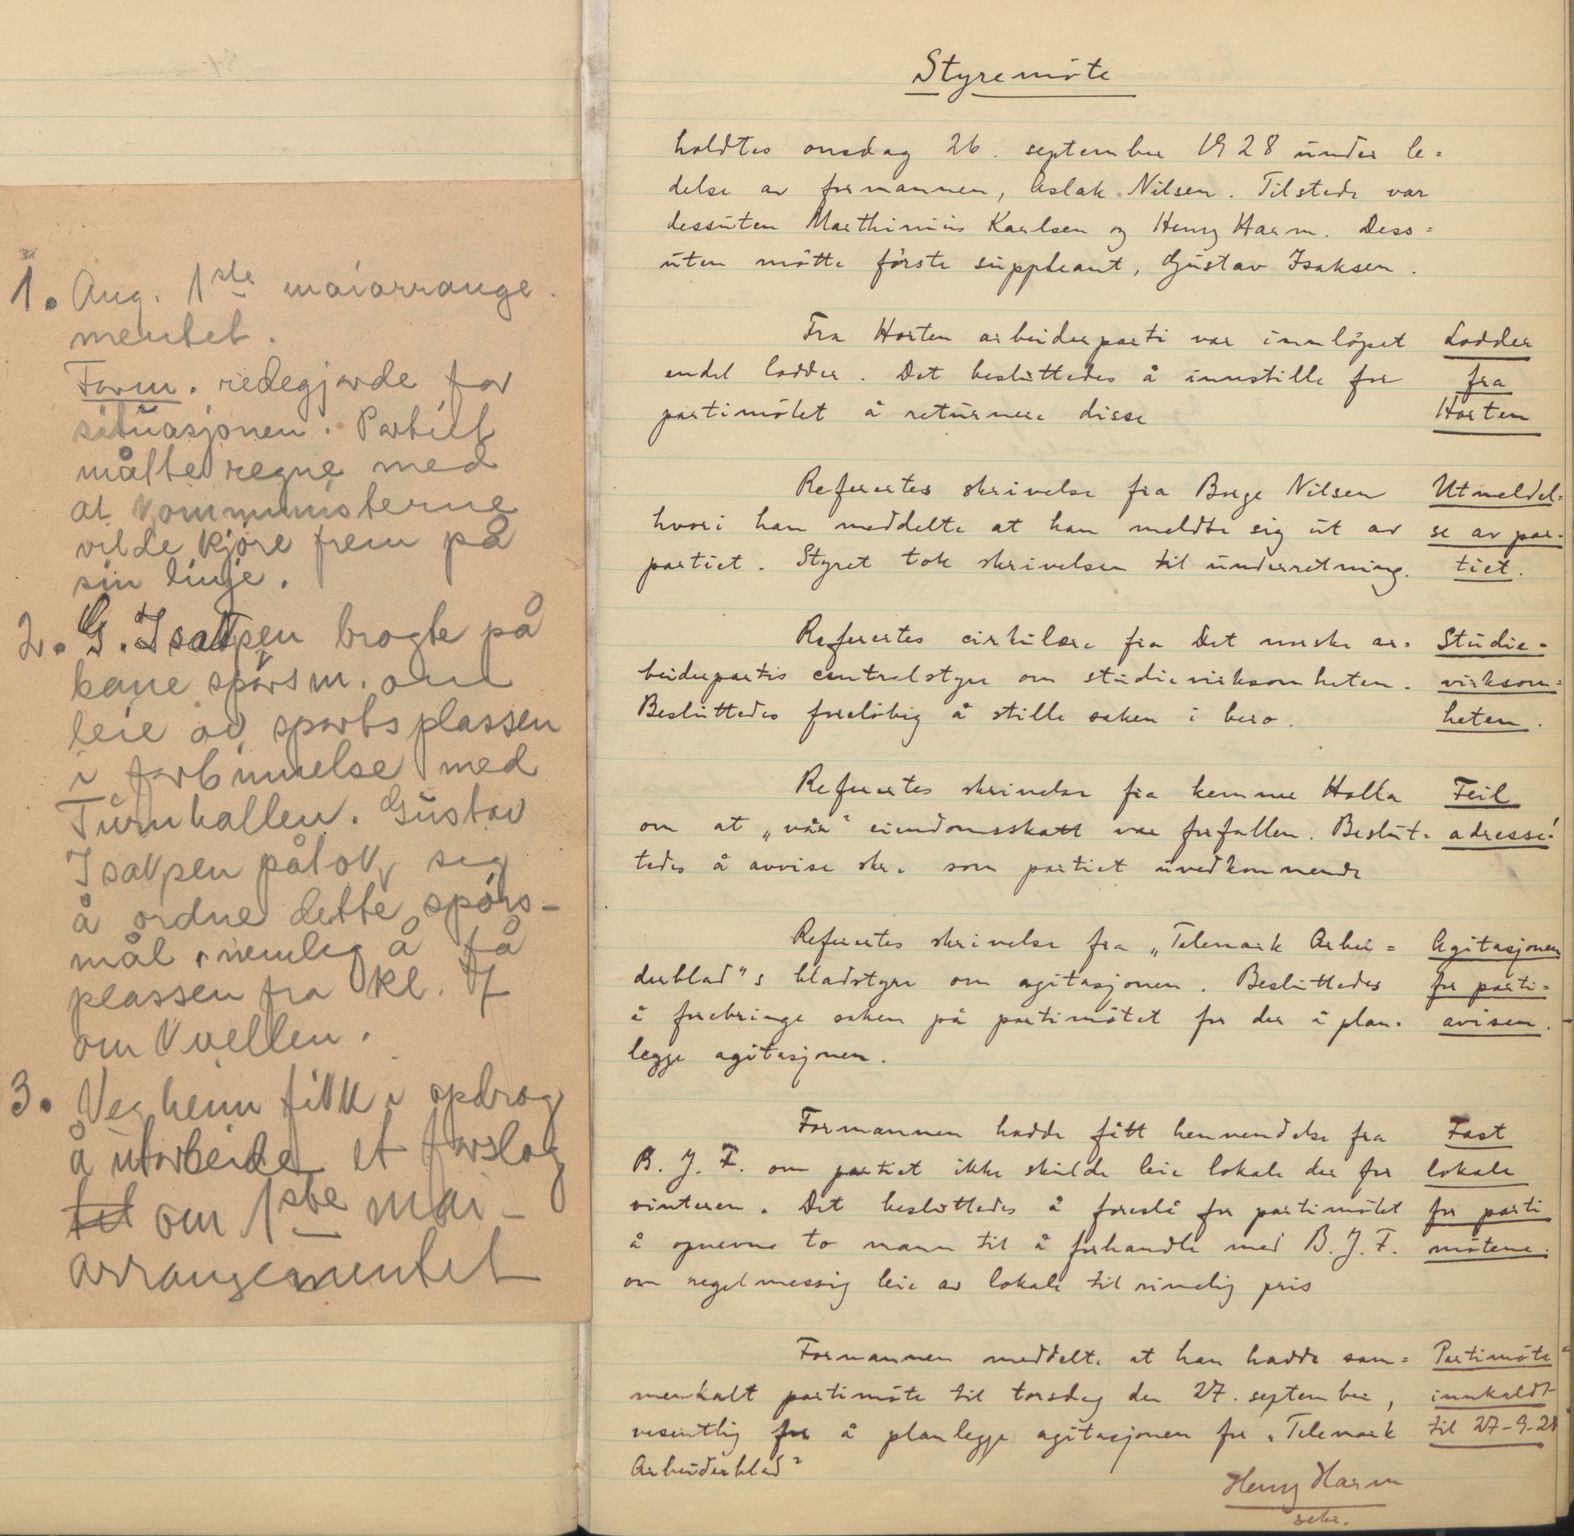 1. Ang. 1ste maiarrange-
mentet.
Form. redegjorde for
situasjonen. Partiet
måtte regne med
at kommunisterne
vilde kjøre frem på
sin linje.
2. G. Isaksen bragte på
bane spörsm. om
leie av sportsplassen
i forbinnelse med
Turnhallen. Gustav
Isaksen påtok sig
å ordne dette spörs-
mål, nemlig å få
plassen fra kl. 7
om kvellen.
3. Vegheim fikk i opdrag
å utarbeide et forslag
tet om 1ste mai-
arrangementet
Styremöte
holdtes onsdag 26. september 1928 under le=
delse av formannen, Aslak Nilsen. Tilstede var
dessuten Marthinius Karlsen og Henry Harm. Dess=
uten mötte förste suppleant, Gustav Isaksen.
Fra Horten arbeiderparti var innlöpet
endel lodder. Det besluttedes å innstille for
partimötet å returnere disse
Lodder
fra
Horten
Refertes skrivelse fra Borge Nilsen
hvori han meddelte at han meldte sig ut av
partiet. Styret tok skrivelsen til underretning.
Utmeldel=
se av par-
tiet.
Refertes cirkulære fra Det norske ar=
beiderpartis centralstyre om studievirksomheten.
Besluttedes forelöbig å stille saken i bero.
Studie=
virksom=
heten.
Refertes skrivelse fra kemner Holla
om at „vår" eiendomsskatt var forfallen. Beslut=
tedes å avvise skr. som partiet uvedkommende
Feil
adresse!
Refertes skrivelse fra „Telemark Arbei=
derblad"s bladstyre om agitasjonen. Besluttedes
å forebringe saken på partimötet for der å plan=
legge agitasjonen.
Agitasjonen
for parti=
avisen.
Formannen hadde fått henvendelse fra
B. J. F. om partiet ikke skulde leie lokale der for
vinteren. Det besluttedes å foreslå for partimötet
å opnevne to mann til å forhandle med B. J. F.
om regelmessig leie av lokale til rimelig pris
Fast
lokale
for parti
mötene.
Formannen meddelte at han hadde sam=
menkalt partimöte til torsdag den 27. september,
vesentlig for å planlegge agitasjonen for „Telemark
Arbeiderblad"
Partimöte
innkaldt
til 27-9-28
Henry Harm
sekr.